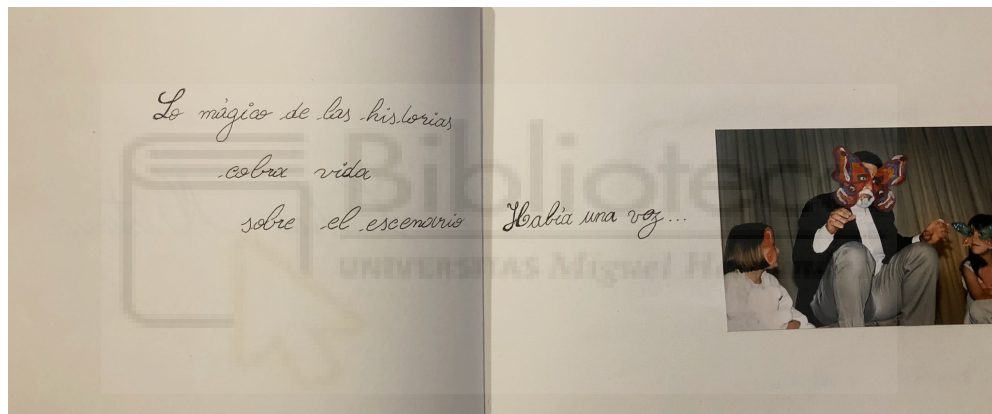 Lo mágico de las historias
cobra vida
sobre el escenario
Había una vez...
Biblioteca
UNIVERSITAS Miguel